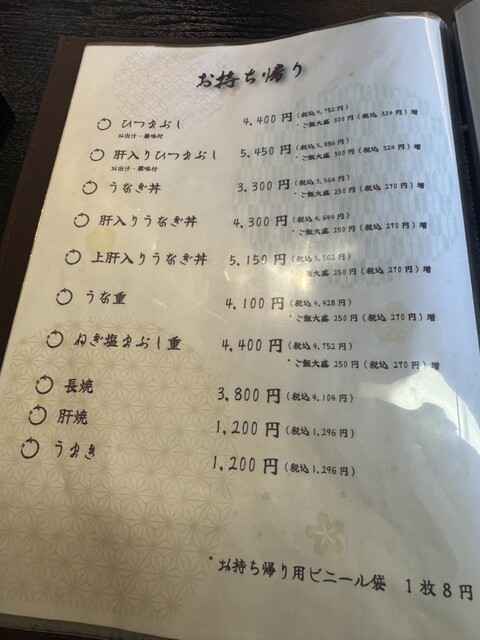 お持ち帰り
ひつまぶし 4,400円 (税込4,752円)
お出汁・薬味付 ・ご飯大盛 300円 (税込 324円) 増
肝入りひつまぶし 5,450円 (税込5,886円)
お出汁・薬味付 ・ご飯大盛 300円 (税込 324円) 増
うなぎ丼 3,300円 (税込3,564円)
・ご飯大盛 250円 (税込 270円) 増
肝入りうなぎ丼 4,300円 (税込4,644円)
・ご飯大盛 250円 (税込 270円) 増
上肝入りうなぎ丼 5,150円 (税込5,562円)
・ご飯大盛 250円 (税込 270円) 増
うな重 4,100円 (税込4,428円)
・ご飯大盛 250円 (税込 270円) 増
ねぎ塩まぶし重 4,400円 (税込4,752円)
・ご飯大盛 250円 (税込 270円) 増
長焼 3,800円 (税込4,104円)
肝焼 1,200円 (税込1,296円)
うまき 1,200円 (税込1,296円)
・お持ち帰り用ビニール袋 1枚8円